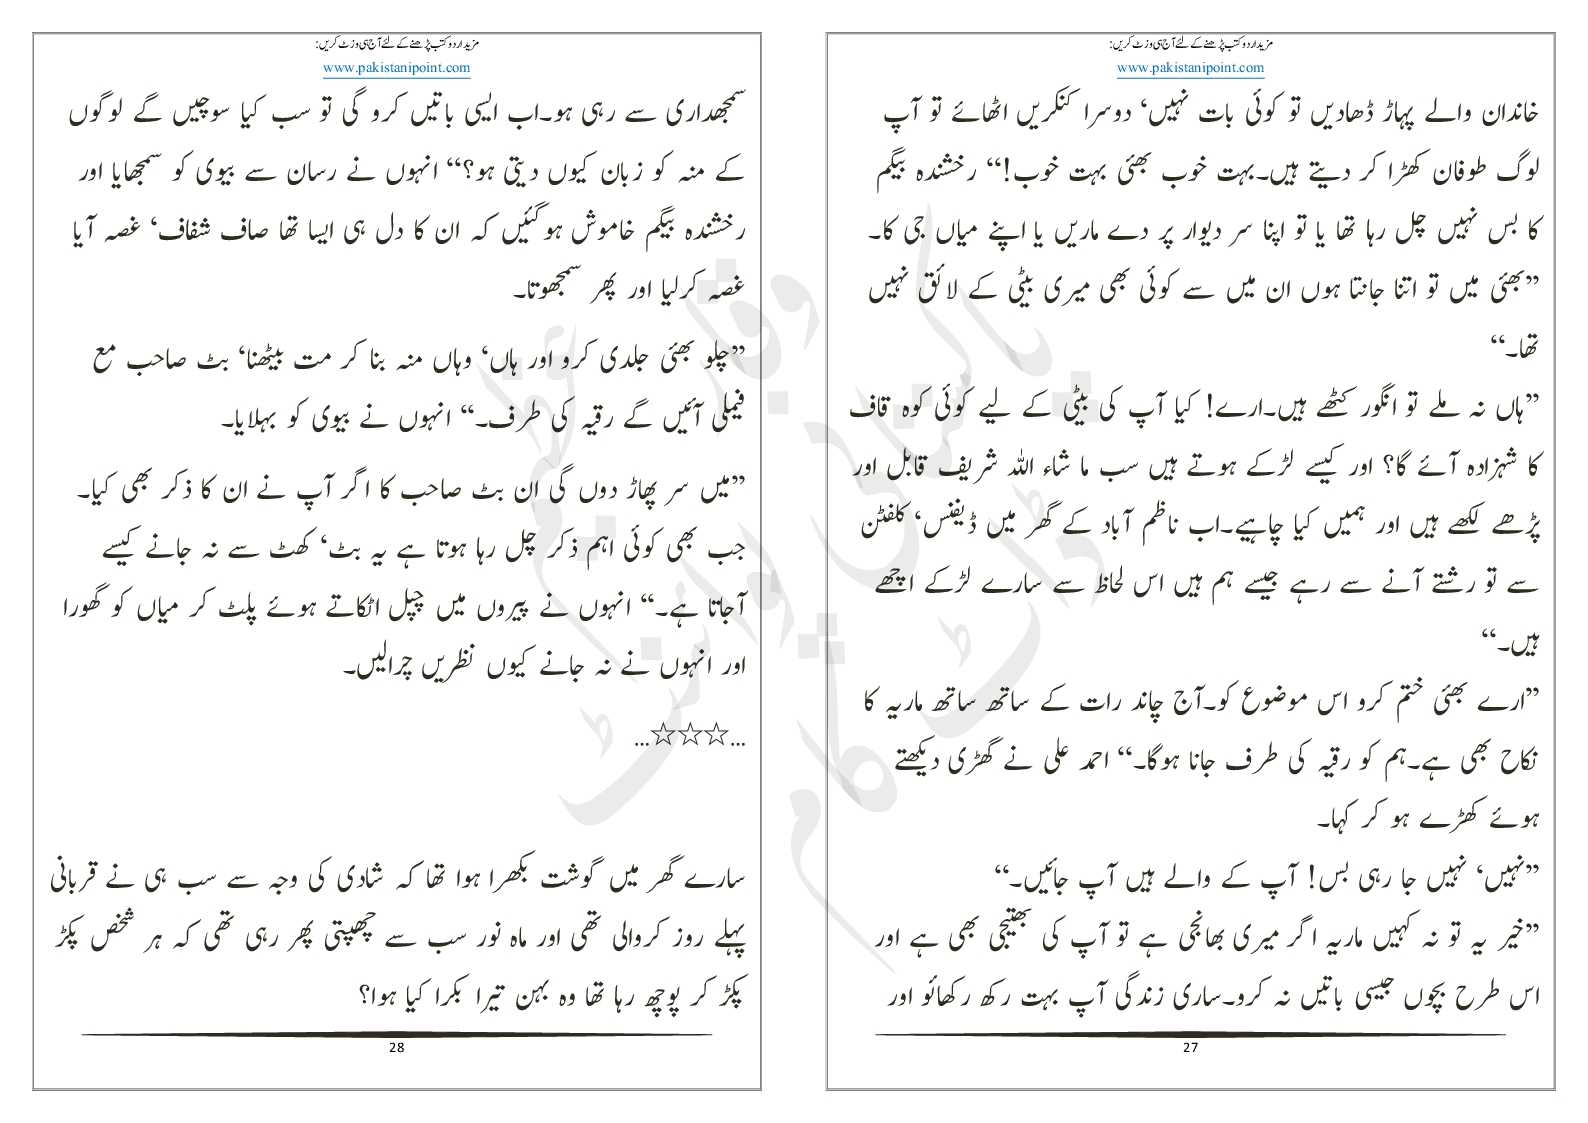 مزید اردو کتب پڑھنے کے لئے آج ہی وزٹ کریں:
www.pakistanipoint.com
خاندان والے پہاڑ ڈھادیں تو کوئی بات نہیں، دوسرا کنکریں اٹھائے تو آپ
لوگ طوفان کھڑا کر دیتے ہیں۔بہت خوب بھئی بہت خوب!“ رخشندہ بیگم
کا بس نہیں چل رہا تھا یا تو اپنا سر دیوار پر دے ماریں یا اپنے میاں جی کا۔
”بھئی میں تو اتنا جانتا ہوں ان میں سے کوئی بھی میری بیٹی کے لائق نہیں
تھا۔“
”ہاں نہ ملے تو انگور کٹھے ہیں۔ارے! کیا آپ کی بیٹی کے لیے کوئی کوہ قاف
کا شہزادہ آئے گا؟ اور کیسے لڑکے ہوتے ہیں سب ما شاء اللہ شریف قابل اور
پڑھے لکھے ہیں اور ہمیں کیا چاہیے۔اب ناظم آباد کے گھر میں ڈیفنس، کلفٹن
سے تو رشتے آنے سے رہے جیسے ہم ہیں اس لحاظ سے سارے لڑکے اچھے
ہیں۔“
”ارے بھئی ختم کرو اس موضوع کو۔آج چاند رات کے ساتھ ساتھ ماریہ کا
نکاح بھی ہے۔ہم کو رقیہ کی طرف جانا ہوگا۔“ احمد علی نے گھڑی دیکھتے
ہوئے کھڑے ہو کر کہا۔
”نہیں، نہیں جا رہی بس! آپ کے والے ہیں آپ جائیں۔“
”خیر یہ تو نہ کہیں ماریہ اگر میری بھانجی ہے تو آپ کی بھتیجی بھی ہے اور
اس طرح بچوں جیسی باتیں نہ کرو۔ساری زندگی آپ بہت رکھ رکھائو اور
27
مزید اردو کتب پڑھنے کے لئے آج ہی وزٹ کریں:
www.pakistanipoint.com
سمجھداری سے رہی ہو۔اب ایسی باتیں کرو گی تو سب کیا سوچیں گے لوگوں
کے منہ کو زبان کیوں دیتی ہو؟“ انہوں نے رسان سے بیوی کو سمجھایا اور
رخشندہ بیگم خاموش ہوگئیں کہ ان کا دل ہی ایسا تھا صاف شفاف، غصہ آیا
غصہ کرلیا اور پھر سمجھوتا۔
”چلو بھئی جلدی کرو اور ہاں، وہاں منہ بنا کر مت بیٹھنا، بٹ صاحب مع
فیملی آئیں گے رقیہ کی طرف۔“ انہوں نے بیوی کو بہلایا۔
”میں سر پھاڑ دوں گی ان بٹ صاحب کا اگر آپ نے ان کا ذکر بھی کیا۔
جب بھی کوئی اہم ذکر چل رہا ہوتا ہے یہ بٹ، کھٹ سے نہ جانے کیسے
آجاتا ہے۔“ انہوں نے پیروں میں چپل اٹکاتے ہوئے پلٹ کر میاں کو گھورا
اور انہوں نے نہ جانے کیوں نظریں چرالیں۔
…☆☆☆…
سارے گھر میں گوشت بکھرا ہوا تھا کہ شادی کی وجہ سے سب ہی نے قربانی
پہلے روز کروالی تھی اور ماہ نور سب سے چھپتی پھر رہی تھی کہ ہر شخص پکڑ
پکڑ کر پوچھ رہا تھا وہ بہن تیرا بکرا کیا ہوا؟
28
پاکستانی پوائنٹ ڈاٹ کام